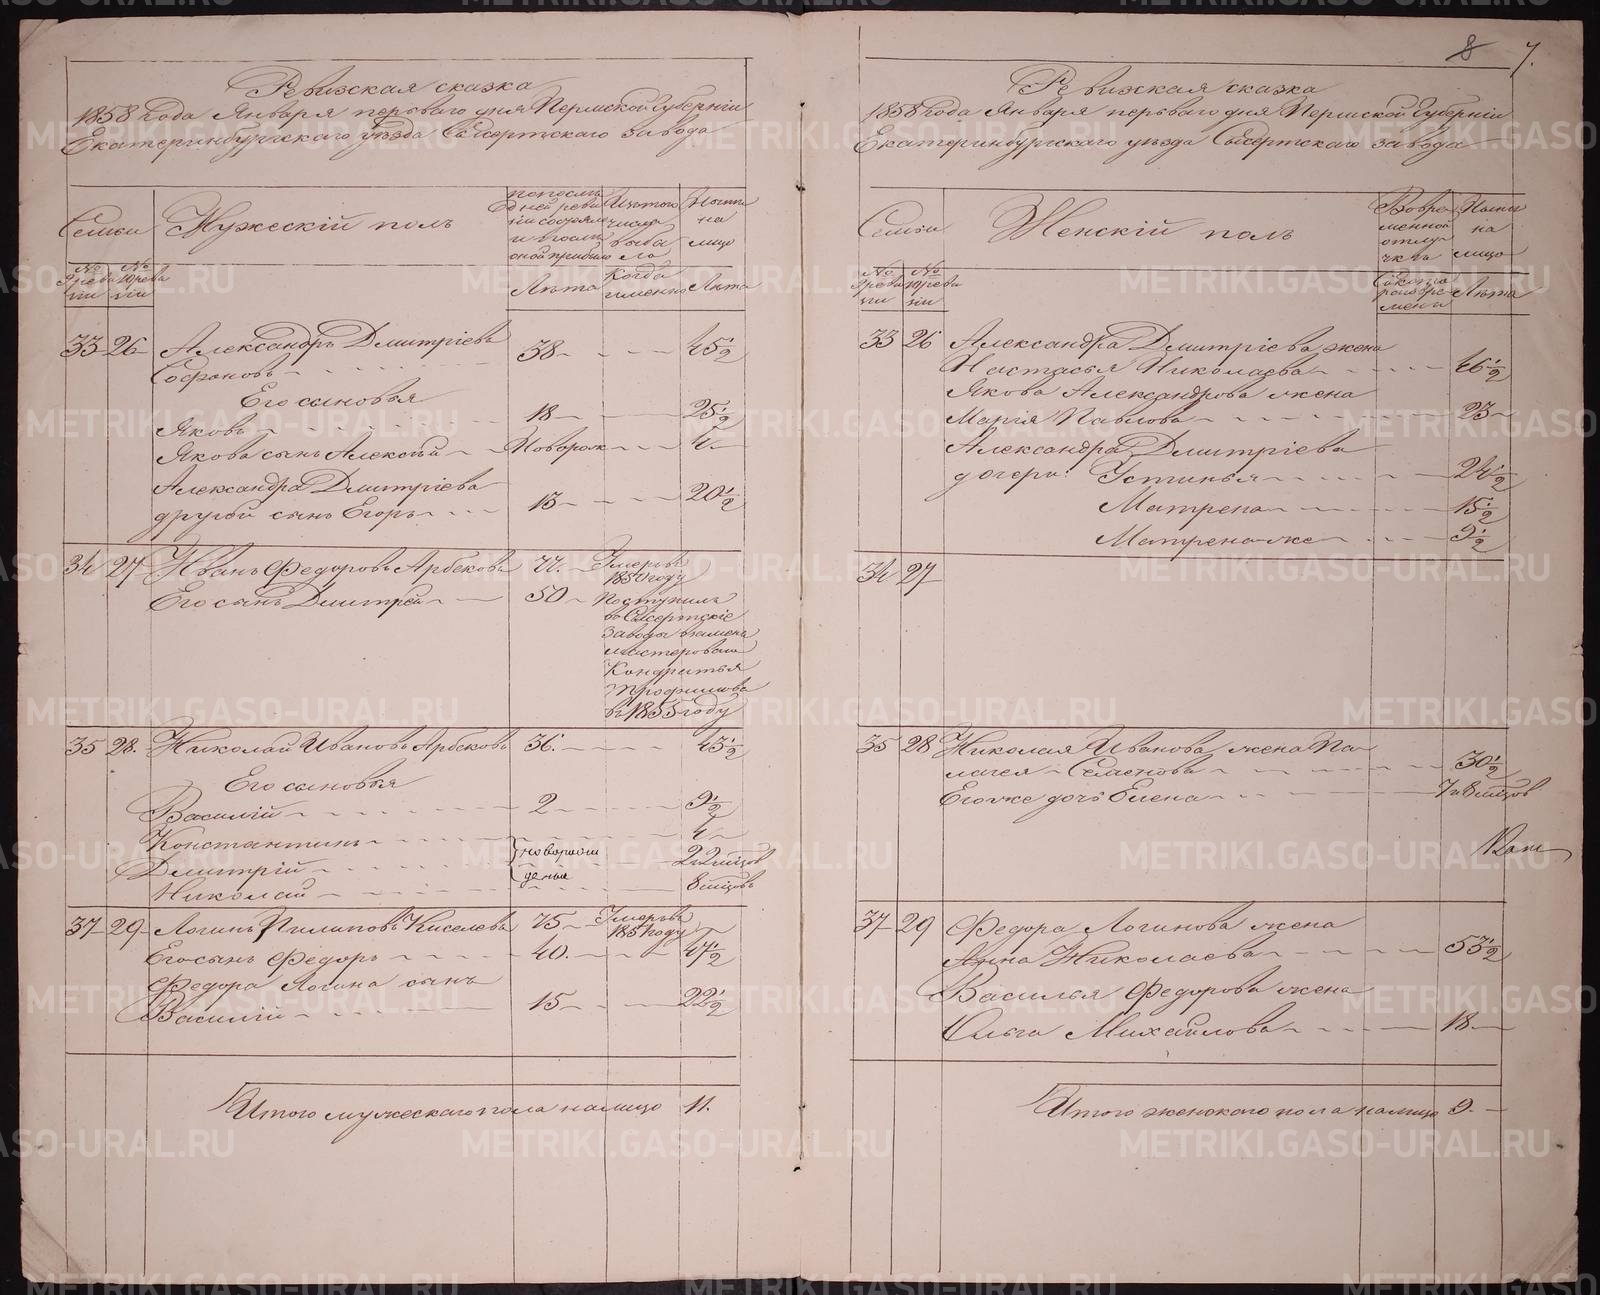 8 7.
Ревизская сказка
1858 года Января перваго дня Пермской Губерніи
Екатеринбургскаго уѣзда Сысертскаго завода
Семьи
Мужескій полъ
по послѣдней ревизіи состояло и послѣ оной прибыло
Изъ того числа выбыло
Нынѣ на лицо
№ 9 ревизіи
№ 10 ревизіи
Лѣта
Когда именно
Лѣта
33 26 Александръ Дмитріевъ
Софоновъ 38 45½
Его сыновья
Яковъ 18 25½
Якова сынъ Алексѣй Новорож 4
Александра Дмитріева
другой сынъ Егоръ 13 20½
34 27 Иванъ Федоровъ Арбековъ 77. Умеръ въ
1850 году
Его сынъ Дмитрей 50 Поступилъ
въ Сысертскіе
заводы взамена
мастероваго
Кондратья
Трофимова
въ 1855 году
35 28. Николай Ивановъ Арбековъ 36. 43½
Его сыновья
Василій 2 9½
Константинъ 4
Дмитрій новорож
деные 2 и 2 мѣсцов
Николай 8 мѣсцовъ
37 29 Логинъ Пилиповъ Киселевъ 75 Умеръ въ
1851 году
Его сынъ Федоръ 40. 47½
Федора Логина сынъ
Василій 15 22½
Итого мужескаго пола на лицо 11.
Ревизская сказка
1858 года Января перваго дня Пермской Губерніи
Екатеринбургскаго уѣзда Сысертскаго завода
Семьи
Женскій полъ
Во временной отлучкѣ
Нынѣ на лицо
№ 9 ревизіи
№ 10 ревизіи
Съ котораго времени
Лѣта
33 26 Александра Дмитріева жена
Настасья Николаева 46½
Якова Александрова жена
Марія Павлова 23
Александра Дмитріева
дочери: Устинья 24½
Матрена 15½
Матрена же 9½
34 27
35 28 Николая Иванова жена Пе
лагея Семенова 30½
Его же дочь Елена 7 и 8 мѣсцов
37 29 Федора Логинова жена
Анна Николаева 53½
Василья Федорова жена
Ольга Михайлова 18
Итого женскаго пола на лицо 9.
METRIKI.GASO-URAL.RU